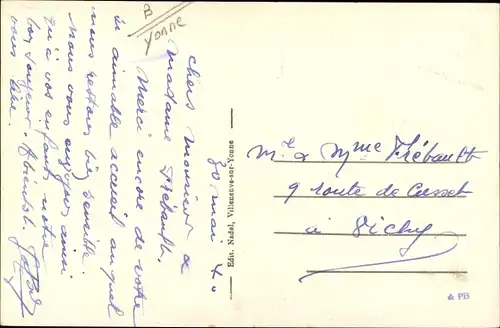 B
Yonne
30 mai 40
Chers Monsieur &
Madame Thébault.
Merci encore de votre
si aimable accueil auquel
nous restons bien sensible.
Nous vous envoyons ainsi
qu'à vos enfants notre
bon souvenir.
vous lire.
Edit. Nadal, Villeneuve-sur-Yonne
Mr & Mme Thébault
9 route de Cusset
à Vichy
& PB